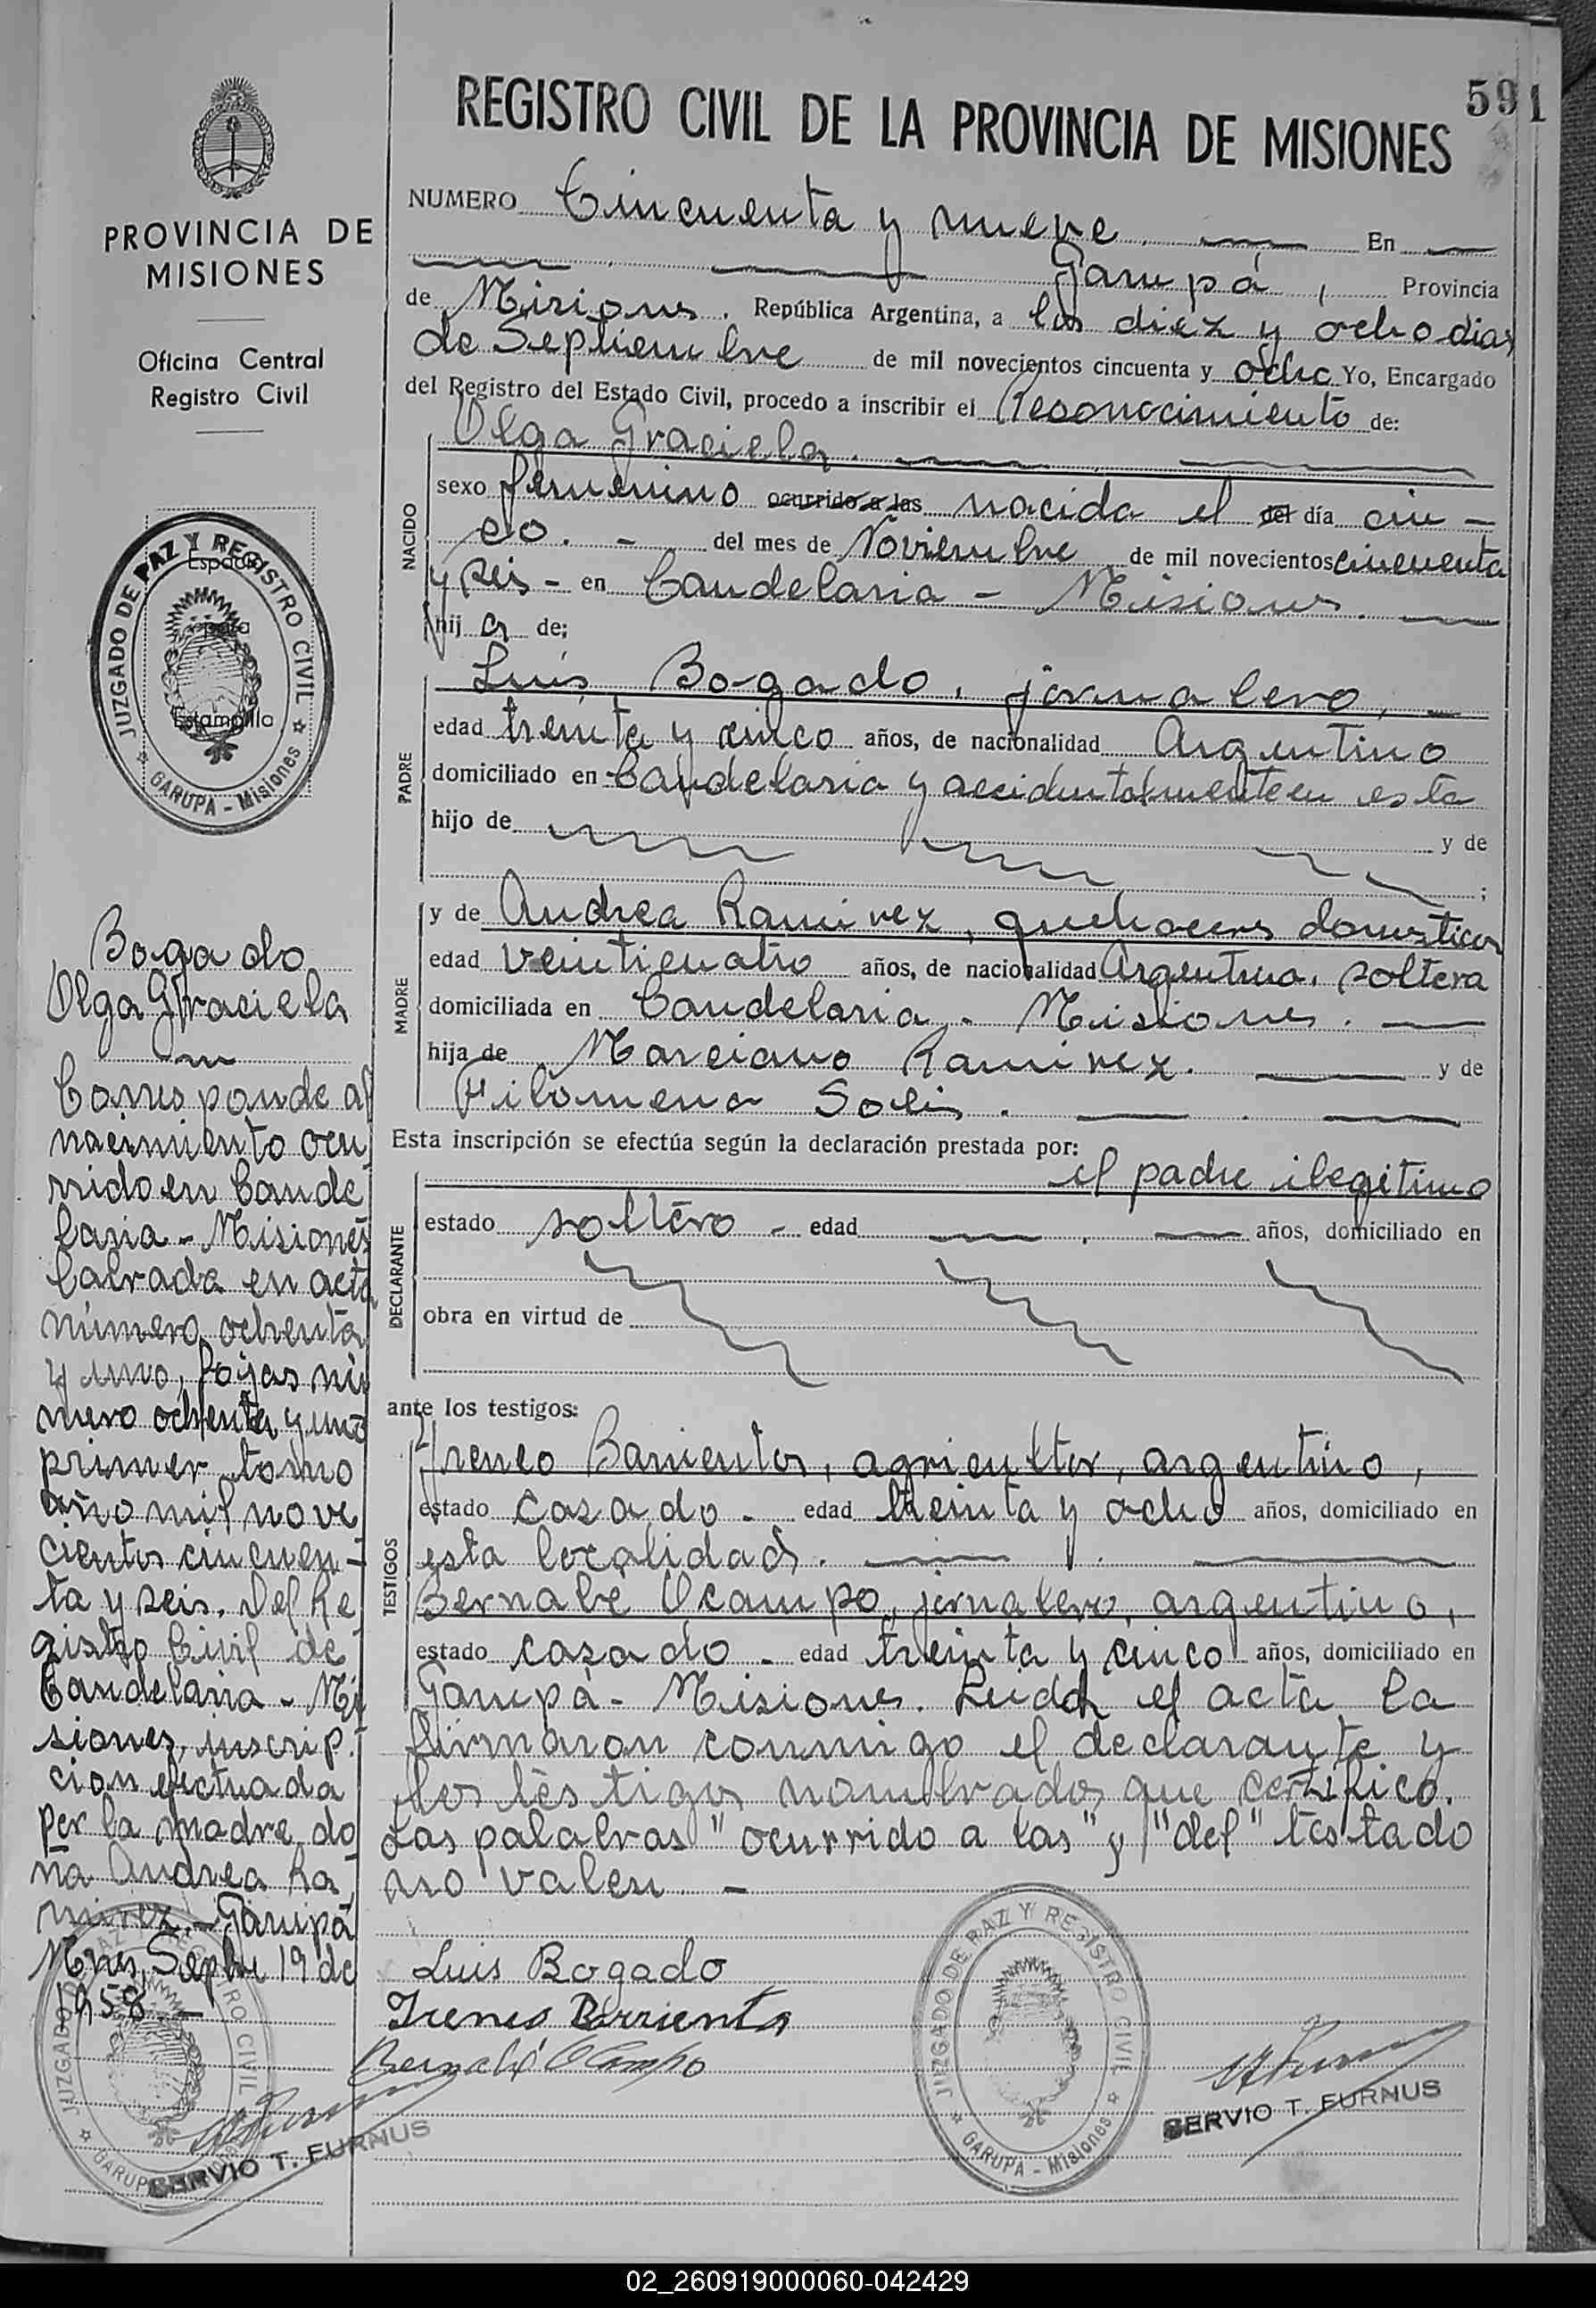 591
REGISTRO CIVIL DE LA PROVINCIA DE MISIONES
PROVINCIA DE
MISIONES
Oficina Central
Registro Civil
JUZGADO DE PAZ Y REGISTRO CIVIL
GARUPA - Misiones
Espacio
para
Estampilla
Bogado
Olga Graciela
Corresponde al
nacimiento ocu
rrido en Cande
laria - Misiones
labrada en acta
número ochenta
y uno, fojas nú
mero ochenta y uno
primer tomo
año mil nove
cientos cincuen-
ta y seis. Del Re
gistro Civil de
Candelaria - Mi
siones, inscrip-
cion efectuada
por la madre do
ña Andrea Ra
mirez. - Garupá
Mnes, Sepbre 19 de
1958. -
JUZGADO DE PAZ Y REGISTRO CIVIL
GARUPA - Misiones
SERVIO T. FURNUS
NUMERO Cincuenta y nueve. En
Garupá, Provincia
de Misiones. República Argentina, a los diez y ocho dias
de Septiembre de mil novecientos cincuenta y ocho Yo, Encargado
del Registro del Estado Civil, procedo a inscribir el Resonocimiento de:
NACIDO
Olga Graciela.
sexo femenino ocurrido a las nacida el del día cin -
co. - del mes de Noviembre de mil novecientos cincuenta
y seis - en Candelaria - Misiones.
hij a de:
PADRE
Luis Bogado, jornalero,
edad treinta y cinco años, de nacionalidad Argentino
domiciliado en Candelaria y accidentalmente en esta
hijo de y de
;
MADRE
y de Andrea Ramirez, quehaceres domesticos
edad veinticuatro años, de nacionalidad Argentina, soltera
domiciliada en Candelaria. - Misiones.
hija de Marciano Ramirez. y de
Filomena Solis.
Esta inscripción se efectúa según la declaración prestada por:
DECLARANTE
el padre ilegitimo
estado soltero - edad años, domiciliado en
obra en virtud de
ante los testigos:
TESTIGOS
Yreneo Barrientos, agricultor, argentino,
estado casado - edad treinta y ocho años, domiciliado en
esta localidad.
Bernabe Ocampo, jornalero, argentino,
estado casado - edad treinta y cinco años, domiciliado en
Garupá - Misiones. Leida el acta la
firmaron conmigo el declarante y
los testigos nombrados que certifico.
Las palabras "ocurrido a las" y "del" testado
no valen. -
Luis Bogado
Ireneo Barrientos
Bernabé Ocampo
JUZGADO DE PAZ Y REGISTRO CIVIL
GARUPA - Misiones
SERVIO T. FURNUS
02_260919000060-042429